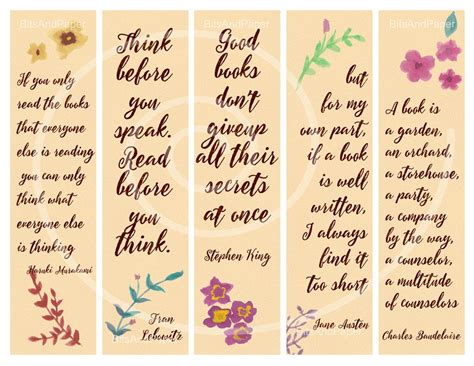 BitsAndPaper
If you only
read the books
that everyone
else is reading
you can only
think what
everyone else
is thinking
Haruki Murakami
Think
before
you
speak.
Read
before
you
think.
Fran
Lebowitz
BitsAndPaper
Good
books
don't
giveup
all their
secrets
at once
Stephen King
BitsAndPaper
but
for my
own part,
if a book
is well
written,
I always
find it
too short
Jane Austen
BitsAndPaper
A book is
a garden,
an orchard,
a storehouse,
a party,
a company
by the way,
a counselor,
a multitude
of counselors
Charles Baudelaire